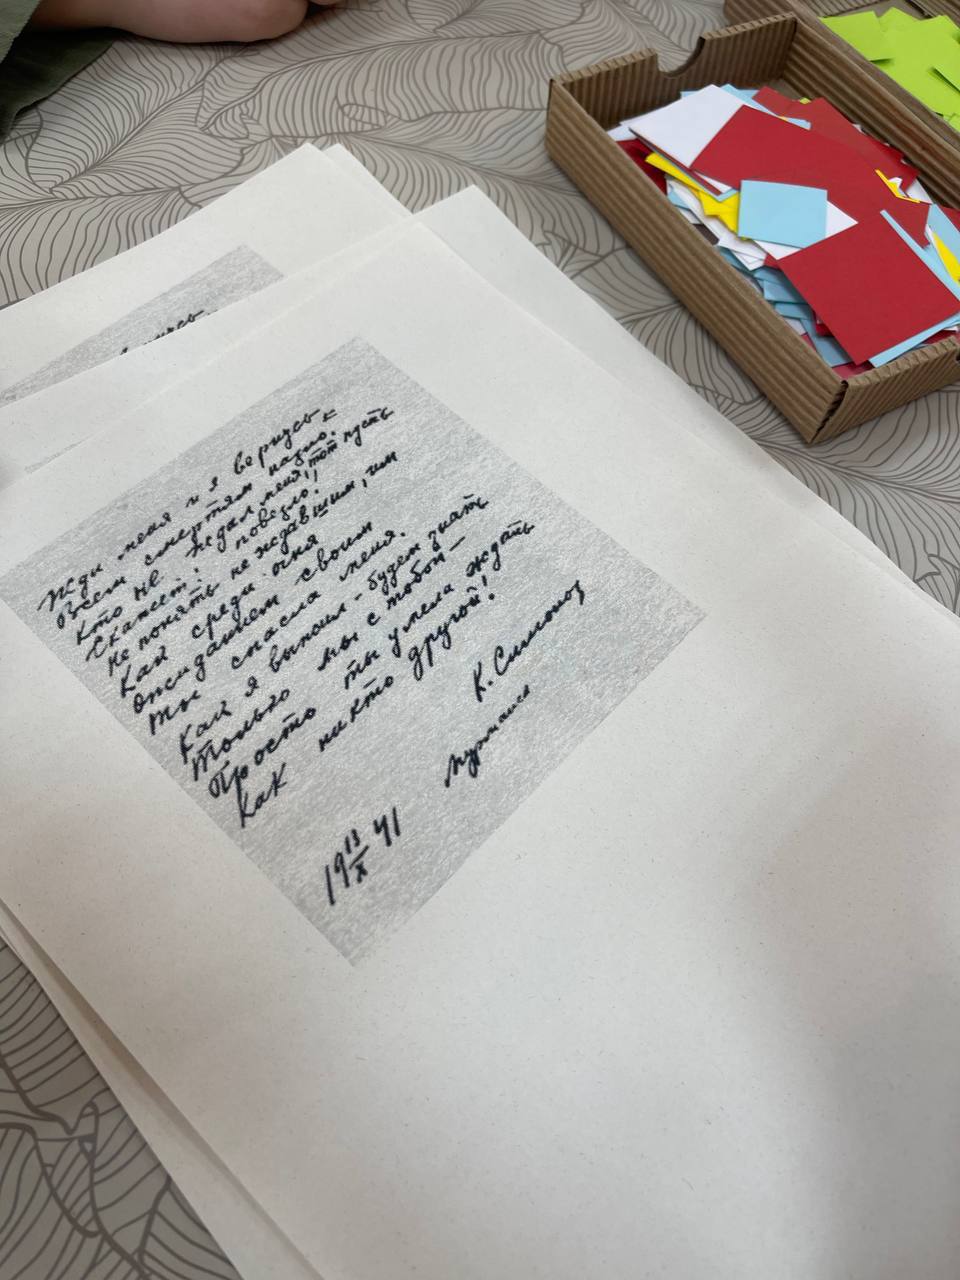 вернусь
Жди меня и я вернусь –
Всем смертям назло.
Кто не ждал меня, тот пусть
Скажет: повезло!
Не понять не ждавшим, им
Как среди огня
Ожиданием своим
Ты спасла меня.
Как я выжил – будем знать
Только мы с тобой –
Просто ты умела ждать
Как никто другой!
К. Симонов
Мурманск
19 13/X 41